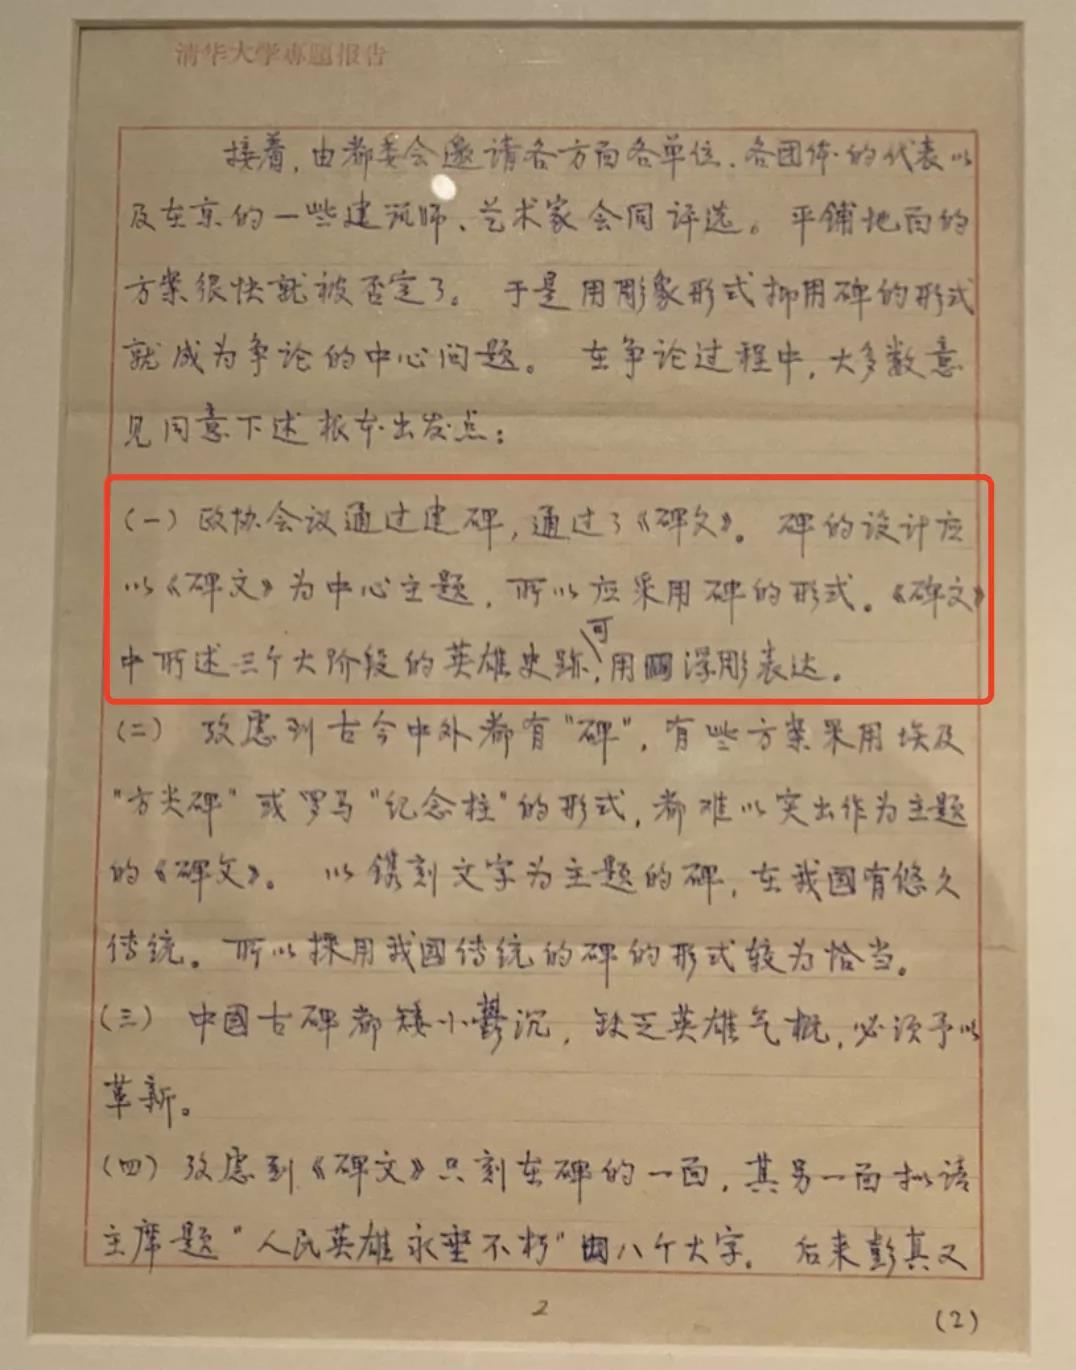 清华大学专题报告
接着，由都委会邀请各方面各单位、各团体的代表以
及在京的一些建筑师、艺术家会同评选。平铺地面的
方案很快就被否定了。于是用彫象形式抑用碑的形式
就成为争论的中心问题。在争论过程中，大多数意
见同意下述根本出发点：
（一）政协会议通过建碑，通过了《碑文》。碑的设计应
以《碑文》为中心主题，所以应采用碑的形式。《碑文》
中所述三个大阶段的英雄史跡，可用浮彫表达。
（二）攷虑到古今中外都有“碑”，有些方案采用埃及
“方尖碑”或罗马“纪念柱”的形式，都难以突出作为主题
的《碑文》。以镌刻文字为主题的碑，在我國有悠久
传统。所以採用我國传统的碑的形式较为恰当。
（三）中國古碑都矮小鬱沉，缺乏英雄气概，必须予以
革新。
（四）攷虑到《碑文》只刻在碑的一面，其另一面拟请
主席题“人民英雄永垂不朽”八个大字。后来彭真又
2
(2)